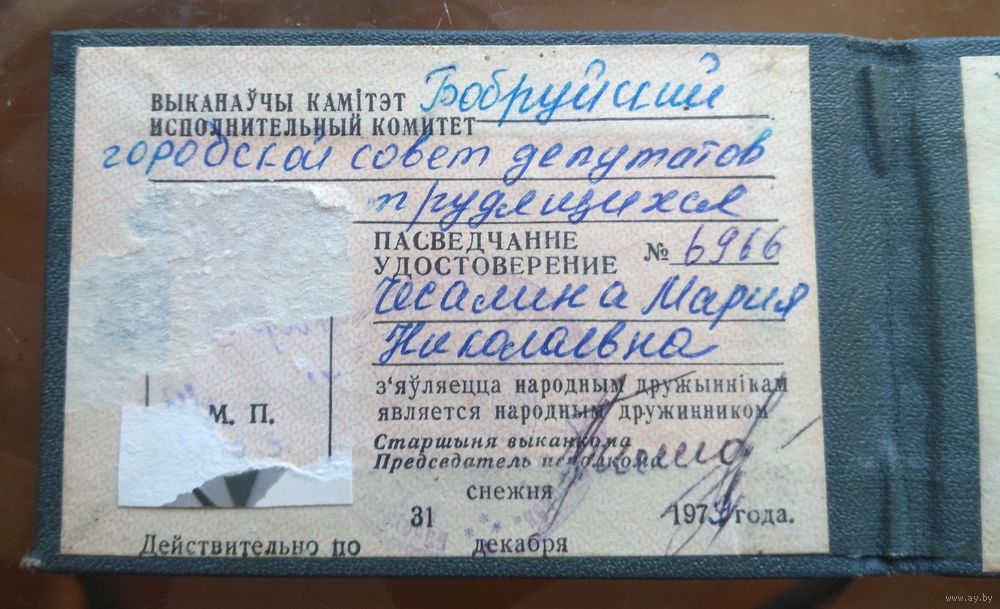 ВЫКАНАЎЧЫ КАМІТЭТ Бобруйский
ИСПОЛНИТЕЛЬНЫЙ КОМИТЕТ
городской совет депутатов
трудящихся
ПАСВЕДЧАННЕ
УДОСТОВЕРЕНИЕ № 6966
Мария
Николаевна
з'яўляецца народным дружыннікам
является народным дружинником
М. П.
Старшыня выканкома
Председатель исполкома
снежня
31 197 года.
Действительно по декабря
www.ay.by